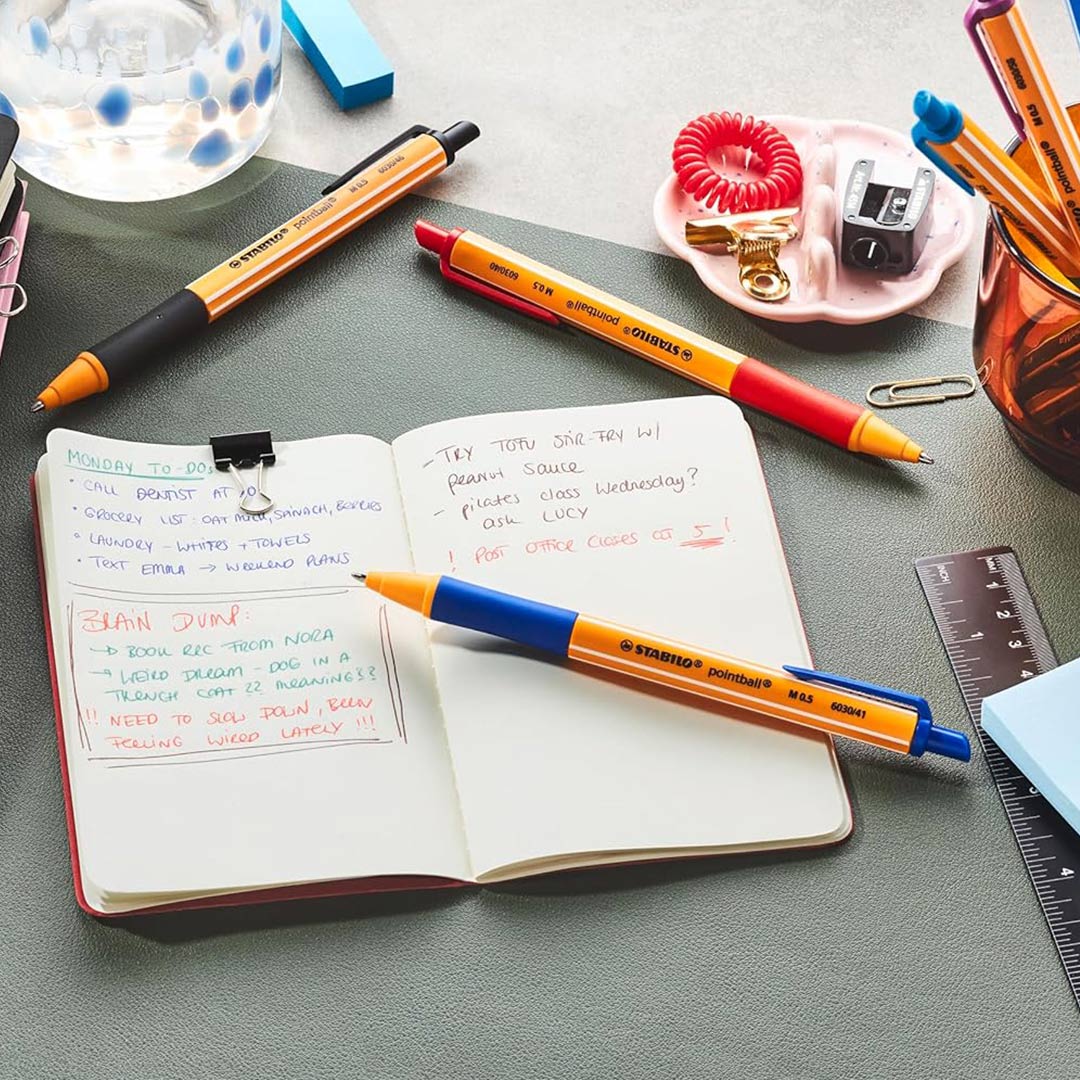 STABILO® pointball® M 0.5 6030/46
STABILO® pointball® M 0.5 6030/40
M 0.5 6030/58
pointball®
MONDAY TO-DOs
• CALL DENTIST AT
• GROCERY LIST: OAT MILK, SPINACH, BERRIES
• LAUNDRY – WHITES + TOWELS
• TEXT EMMA → WEEKEND PLANS
BRAIN DUMP:
→ BOOK REC FROM NORA
→ WEIRD DREAM – DOG IN A
TRENCH COAT ?? MEANING??
!! NEED TO SLOW DOWN, BEEN
FEELING WIRED LATELY !!!
– TRY TOFU STIR-FRY W/
PEANUT SAUCE
– pilates class Wednesday?
ask LUCY
! POST OFFICE CLOSES AT 5 !
STABILO® pointball® M 0.5 6030/41
INCH
1
2
3
4